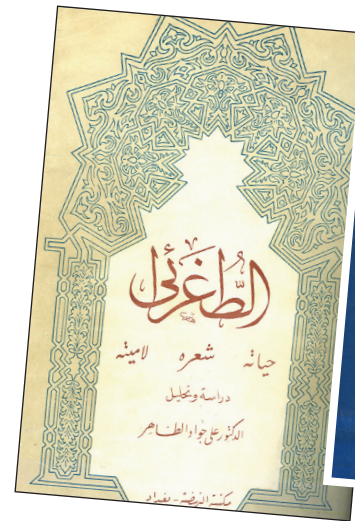 الطُّغَرائي
حياته شعره لاميته
دراسة وتحليل
الدكتور علي جواد الطاهر
مكتبة النهضة - بغداد